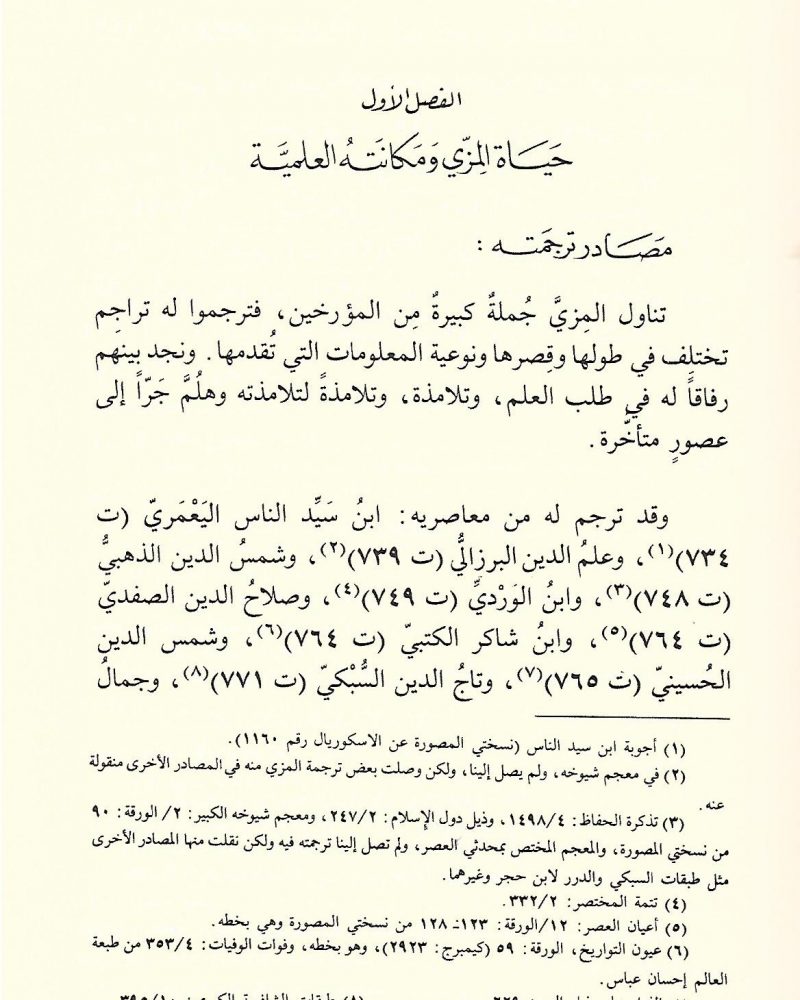 الفصل الأول
حَيَاة المِزّي وَمَكانَتهُ العلميَّة
مَصَادر ترجمَته :
تناول المِزيَّ جُملةٌ كبيرةٌ مِن المؤرخين، فترجموا له تراجِم
تختلِف في طولها وقِصرها ونوعية المعلومات التي تُقدمها. ونجد بينهم
رفاقاً له في طلب العلم، وتلامذة، وتلامذةً لتلامذته وهلُمَّ جَرّاً إلى
عصورٍ متأخَّرة.
وقد ترجم له من معاصريه: ابنُ سَيِّد الناس اليَعْمَريّ (ت
٧٣٤)(١)، وعلمُ الدين البرزاليُّ (ت ٧٣٩)(٢)، وشمسُ الدين الذهبيُّ
(ت ٧٤٨)(٣)، وابنُ الوَرْديِّ (ت ٧٤٩)(٤)، وصلاحُ الدين الصفديّ
(ت ٧٦٤)(٥)، وابنُ شاكر الكتبيّ (ت ٧٦٤)(٦)، وشمس الدين
الحُسينيّ (ت ٧٦٥)(٧)، وتاجُ الدين السُّبْكيّ (ت ٧٧١)(٨)، وجمالُ
(١) أجوبة ابن سيد الناس (نسختي المصورة عن الاسكوريال رقم ١١٦٠).
(٢) في معجم شيوخه، ولم يصل إلينا، ولكن وصلت بعض ترجمة المزي منه في المصادر الأخرى منقولة
عنه.
(٣) تذكرة الحفاظ: ١٤٩٨/٤، وذيل دول الإسلام: ٢٤٧/٢، ومعجم شيوخه الكبير: ٢/ الورقة: ٩٠
من نسختي المصورة، والمعجم المختص بمحدثي العصر، ولم تصل إلينا ترجمته فيه ولكن نقلت منها المصادر الأخرى
مثل طبقات السبكي والدرر لابن حجر وغيرهما.
(٤) تتمة المختصر: ٣٣٢/٢.
(٥) أعيان العصر: ١٢/الورقة: ١٢٣ـ ١٢٨ من نسختي المصورة وهي بخطه.
(٦) عيون التواريخ، الورقة: ٥٩ (كيمبرج: ٢٩٢٣)، وهو بخطه، وفوات الوفيات: ٣٥٣/٤ من طبعة
العالم إحسان عباس.